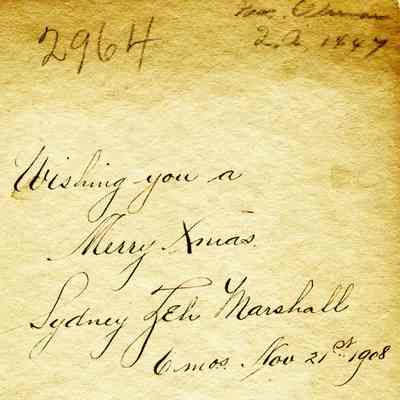 2964
1447
Wishing you a
Merry Xmas.
Sydney Zeh Marshall
6 mos. Nov 21st 1908